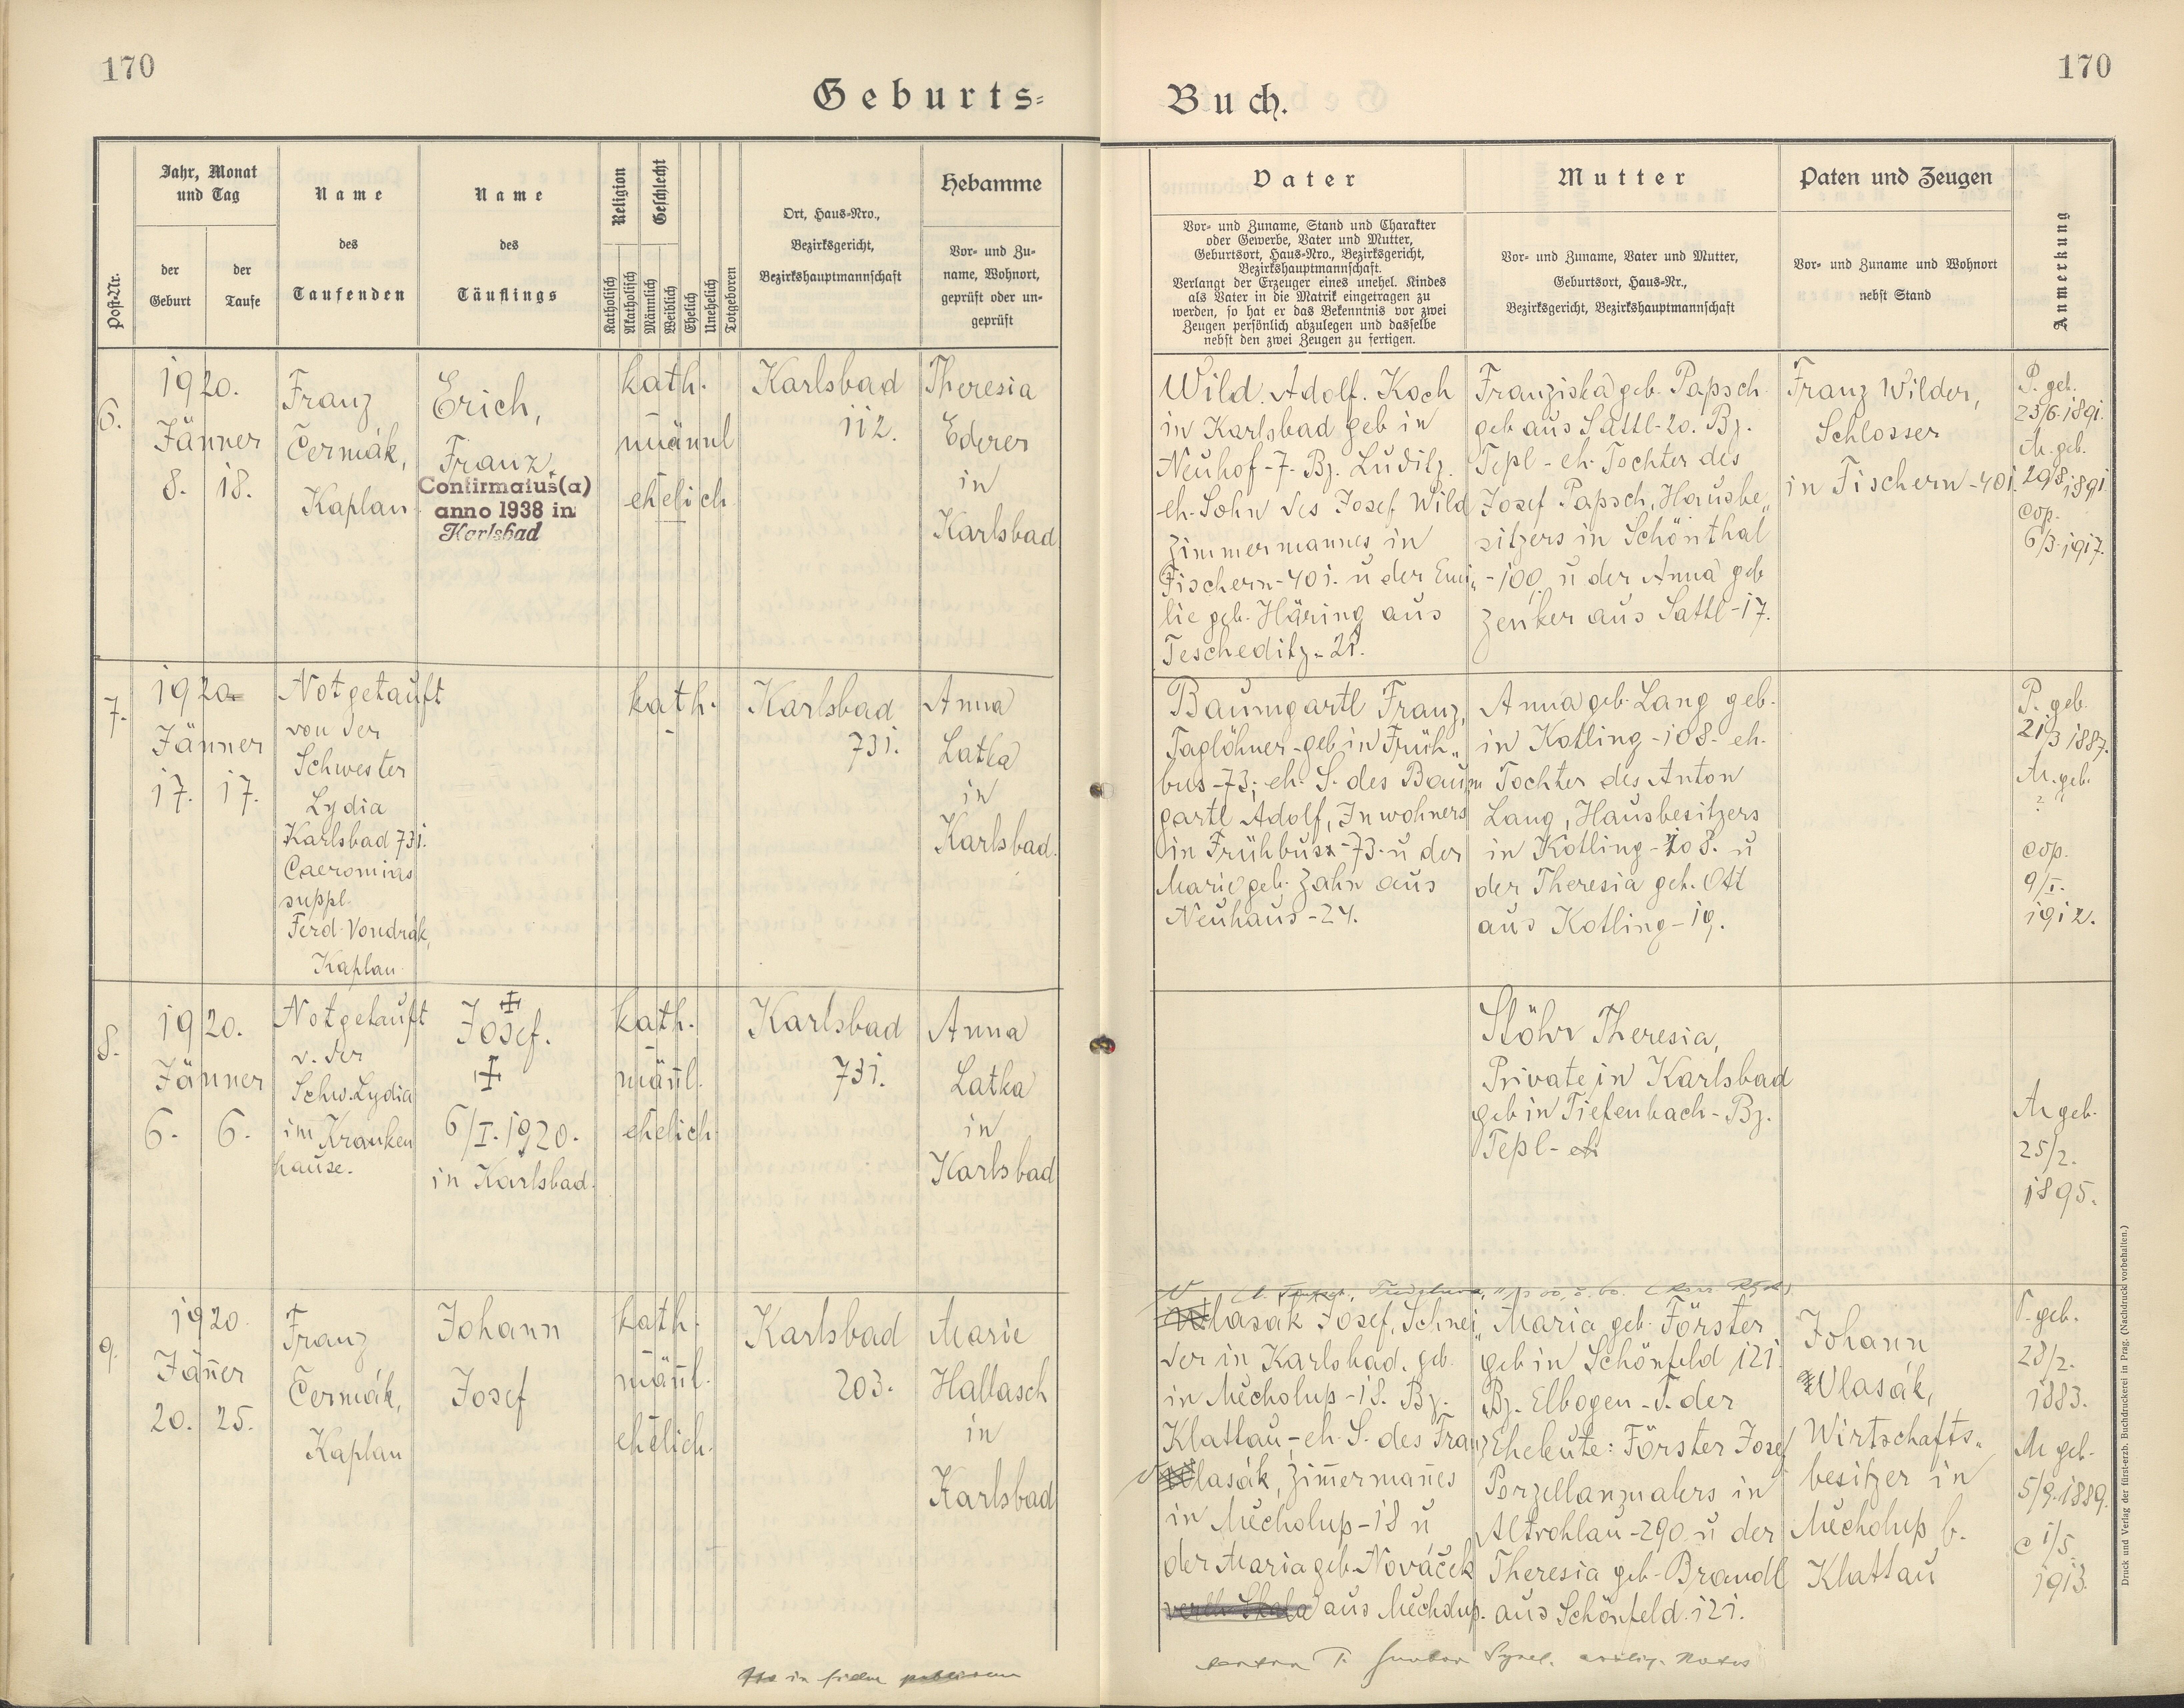 170
170
Geburts-
Buch.
Post-Nr.
Jahr, Monat
und Tag
der
Geburt
der
Taufe
Name
des
Taufenden
Name
des
Täuflings
Religion
Katholisch
Akatholisch
Geschlecht
Männlich
Weiblich
Ehelich
Unehelich
Totgeboren
Ort, Haus-Nro.,
Bezirksgericht,
Bezirkshauptmannschaft
Hebamme
Vor- und Zu-
name, Wohnort,
geprüft oder un-
geprüft
Vater
Vor- und Zuname, Stand und Charakter
oder Gewerbe, Vater und Mutter,
Geburtsort, Haus-Nro., Bezirksgericht,
Bezirkshauptmannschaft.
Verlangt der Erzeuger eines unehel. Kindes
als Vater in die Matrik eingetragen zu
werden, so hat er das Bekenntnis vor zwei
Zeugen persönlich abzulegen und dasselbe
nebst den zwei Zeugen zu fertigen.
Mutter
Vor- und Zuname, Vater und Mutter,
Geburtsort, Haus-Nr.,
Bezirksgericht, Bezirkshauptmannschaft
Paten und Zeugen
Vor- und Zuname und Wohnort
nebst Stand
Anmerkung
6.
1920.
Jänner
8. 18.
Franz
Čermák,
Kaplan
Erich,
Franz.
Confirmatus(a)
anno 1938 in
Karlsbad
kath.
männl
ehelich
Karlsbad
112.
Theresia
Ederer
in
Karlsbad
Wild. Adolf. Koch
in Karlsbad geb in
Neuhof-7. Bz. Luditz.
eh. Sohn des Josef Wild
Zimmermannes in
Fischern-401. u der Emi„
lie geb. Häring aus
Tescheditz-21.
Franziska geb. Papsch
geb aus Sattl-20. Bz.
Tepl - eh. Tochter des
Josef Papsch, Hausbe„
sitzers in Schönthal
-100 u der Anna geb
Zenker aus Sattl-17.
Franz Wilder,
Schlosser
in Fischern-401.
P. geb.
23/6.1891.
M. geb.
29/8.1891
cop.
6/3.1917.
7.
1920.
Jänner
17. 17.
Notgetauft
von der
Schwester
Lydia
Karlsbad 731.
suppl.
Ferd. Vondrák,
Kaplan
kath.
Karlsbad
731.
Anna
Latka
in
Karlsbad.
Baumgartl Franz,
Taglöhner-geb in Früh„
bus-73; eh. S. des Baum
gartl Adolf, Inwohners
in Frühbuss-73. u der
Marie geb. Zahn aus
Neuhaus-24.
Anna geb. Lang geb.
in Kotling-108. eh.
Tochter des Anton
Lang, Hausbesitzers
in Kotling-108. u
der Theresia geb. Ott
aus Kotling-19.
P. geb.
21/3 1887.
M. geb.
?
cop.
9/I.
1912.
8.
1920.
Jänner
6. 6.
Notgetauft
v. der
Schw. Lydia
im Kranken
hause.
Josef.
6/I.1920.
in Karlsbad.
kath.
männl.
ehelich
Karlsbad
731.
Anna
Latka
in
Karlsbad
Stöhr Theresia,
Private in Karlsbad
geb in Tiefenbach-Bz.
Tepl - eh
M geb.
25/2.
1895.
9.
1920.
Jänner
20. 25.
Franz
Čermák,
Kaplan
Johann
Josef
kath.
männl.
ehelich.
Karlsbad
203.
Marie
Hallasch
in
Karlsbad
Vlasák Josef, Schnei„
der in Karlsbad. geb.
in Mecholup-18. Bz.
Klattau-eh. S. des Franz
Vlasák, Zimmermannes
in Mecholup-18 u
der Maria geb. Nováček
aus Mecholup.
Maria geb. Förster
geb in Schönfeld 121.
Bz. Elbogen-T. der
Eheleute: Förster Josef
Porzellanmalers in
Altrohlau-290 u der
Theresia geb. Brandl
aus Schönfeld. 121.
Johann
Vlasák,
Wirtschafts„
besitzer in
Mecholup b.
Klattau
P. geb.
28/2.
1883.
M geb.
5/9.1889.
c 1/5.
1913.
in fidem publicam
Druck und Verlag der fürst-erzb. Buchdruckerei in Prag. (Nachdruck vorbehalten.)